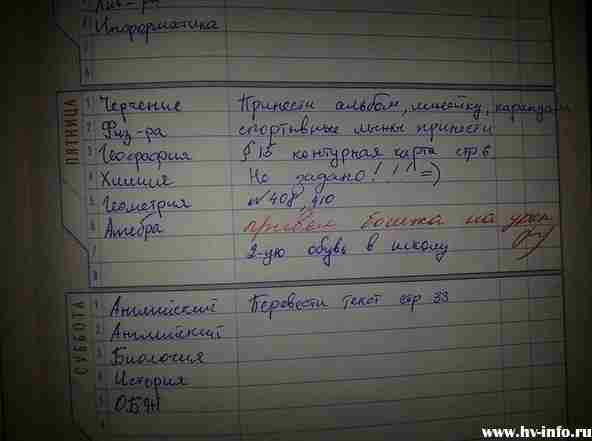 Информатика
ПЯТНИЦА
1 Черчение Принести альбом, линейку, карандаш
2 Физ-ра спортивные лыжи принести
3 География § 15 контурная карта стр 6
4 Химия Не задано!!! =)
5 Геометрия № 408, 410
6 Алгебра привёл бомжа на урок
7 2-ую обувь в школу
8
СУББОТА
1 Английский Перевести текст стр 33
2 Английский
3 Биология
4 История
5 ОБЖ
6
www.hv-info.ru